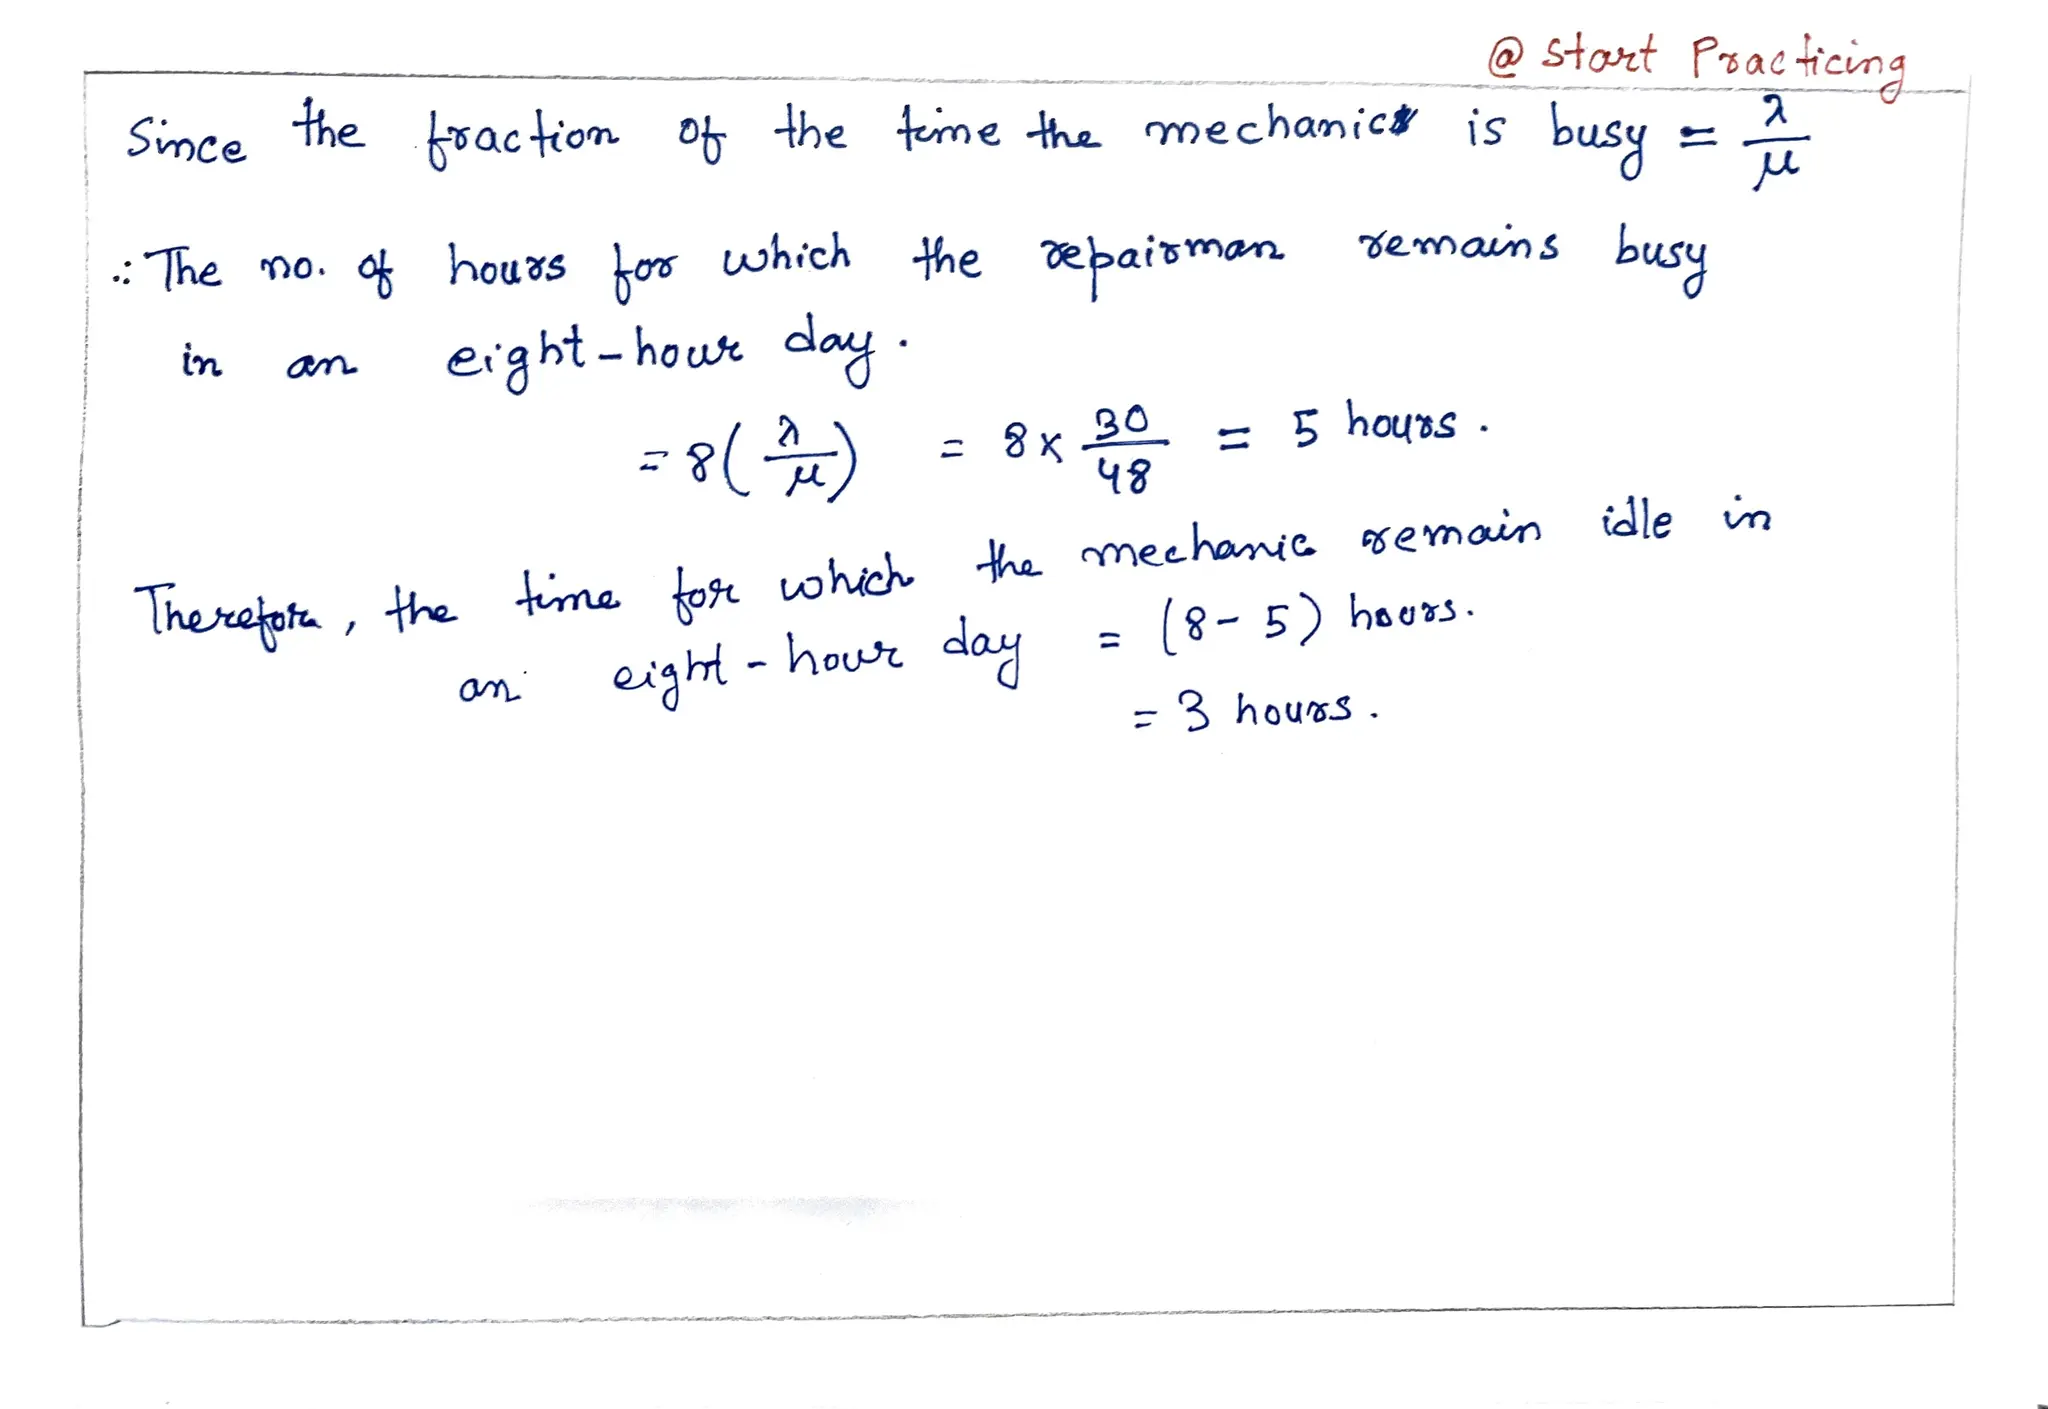 @ Start Practicing
Since the fraction of the time the mechanic is busy = λ/μ
∴ The no. of hours for which the repairman remains busy
in an eight-hour day.
= 8(λ/μ) = 8 × 30/48 = 5 hours.
Therefore, the time for which the mechanic remain idle in
an eight-hour day = (8-5) hours.
= 3 hours.